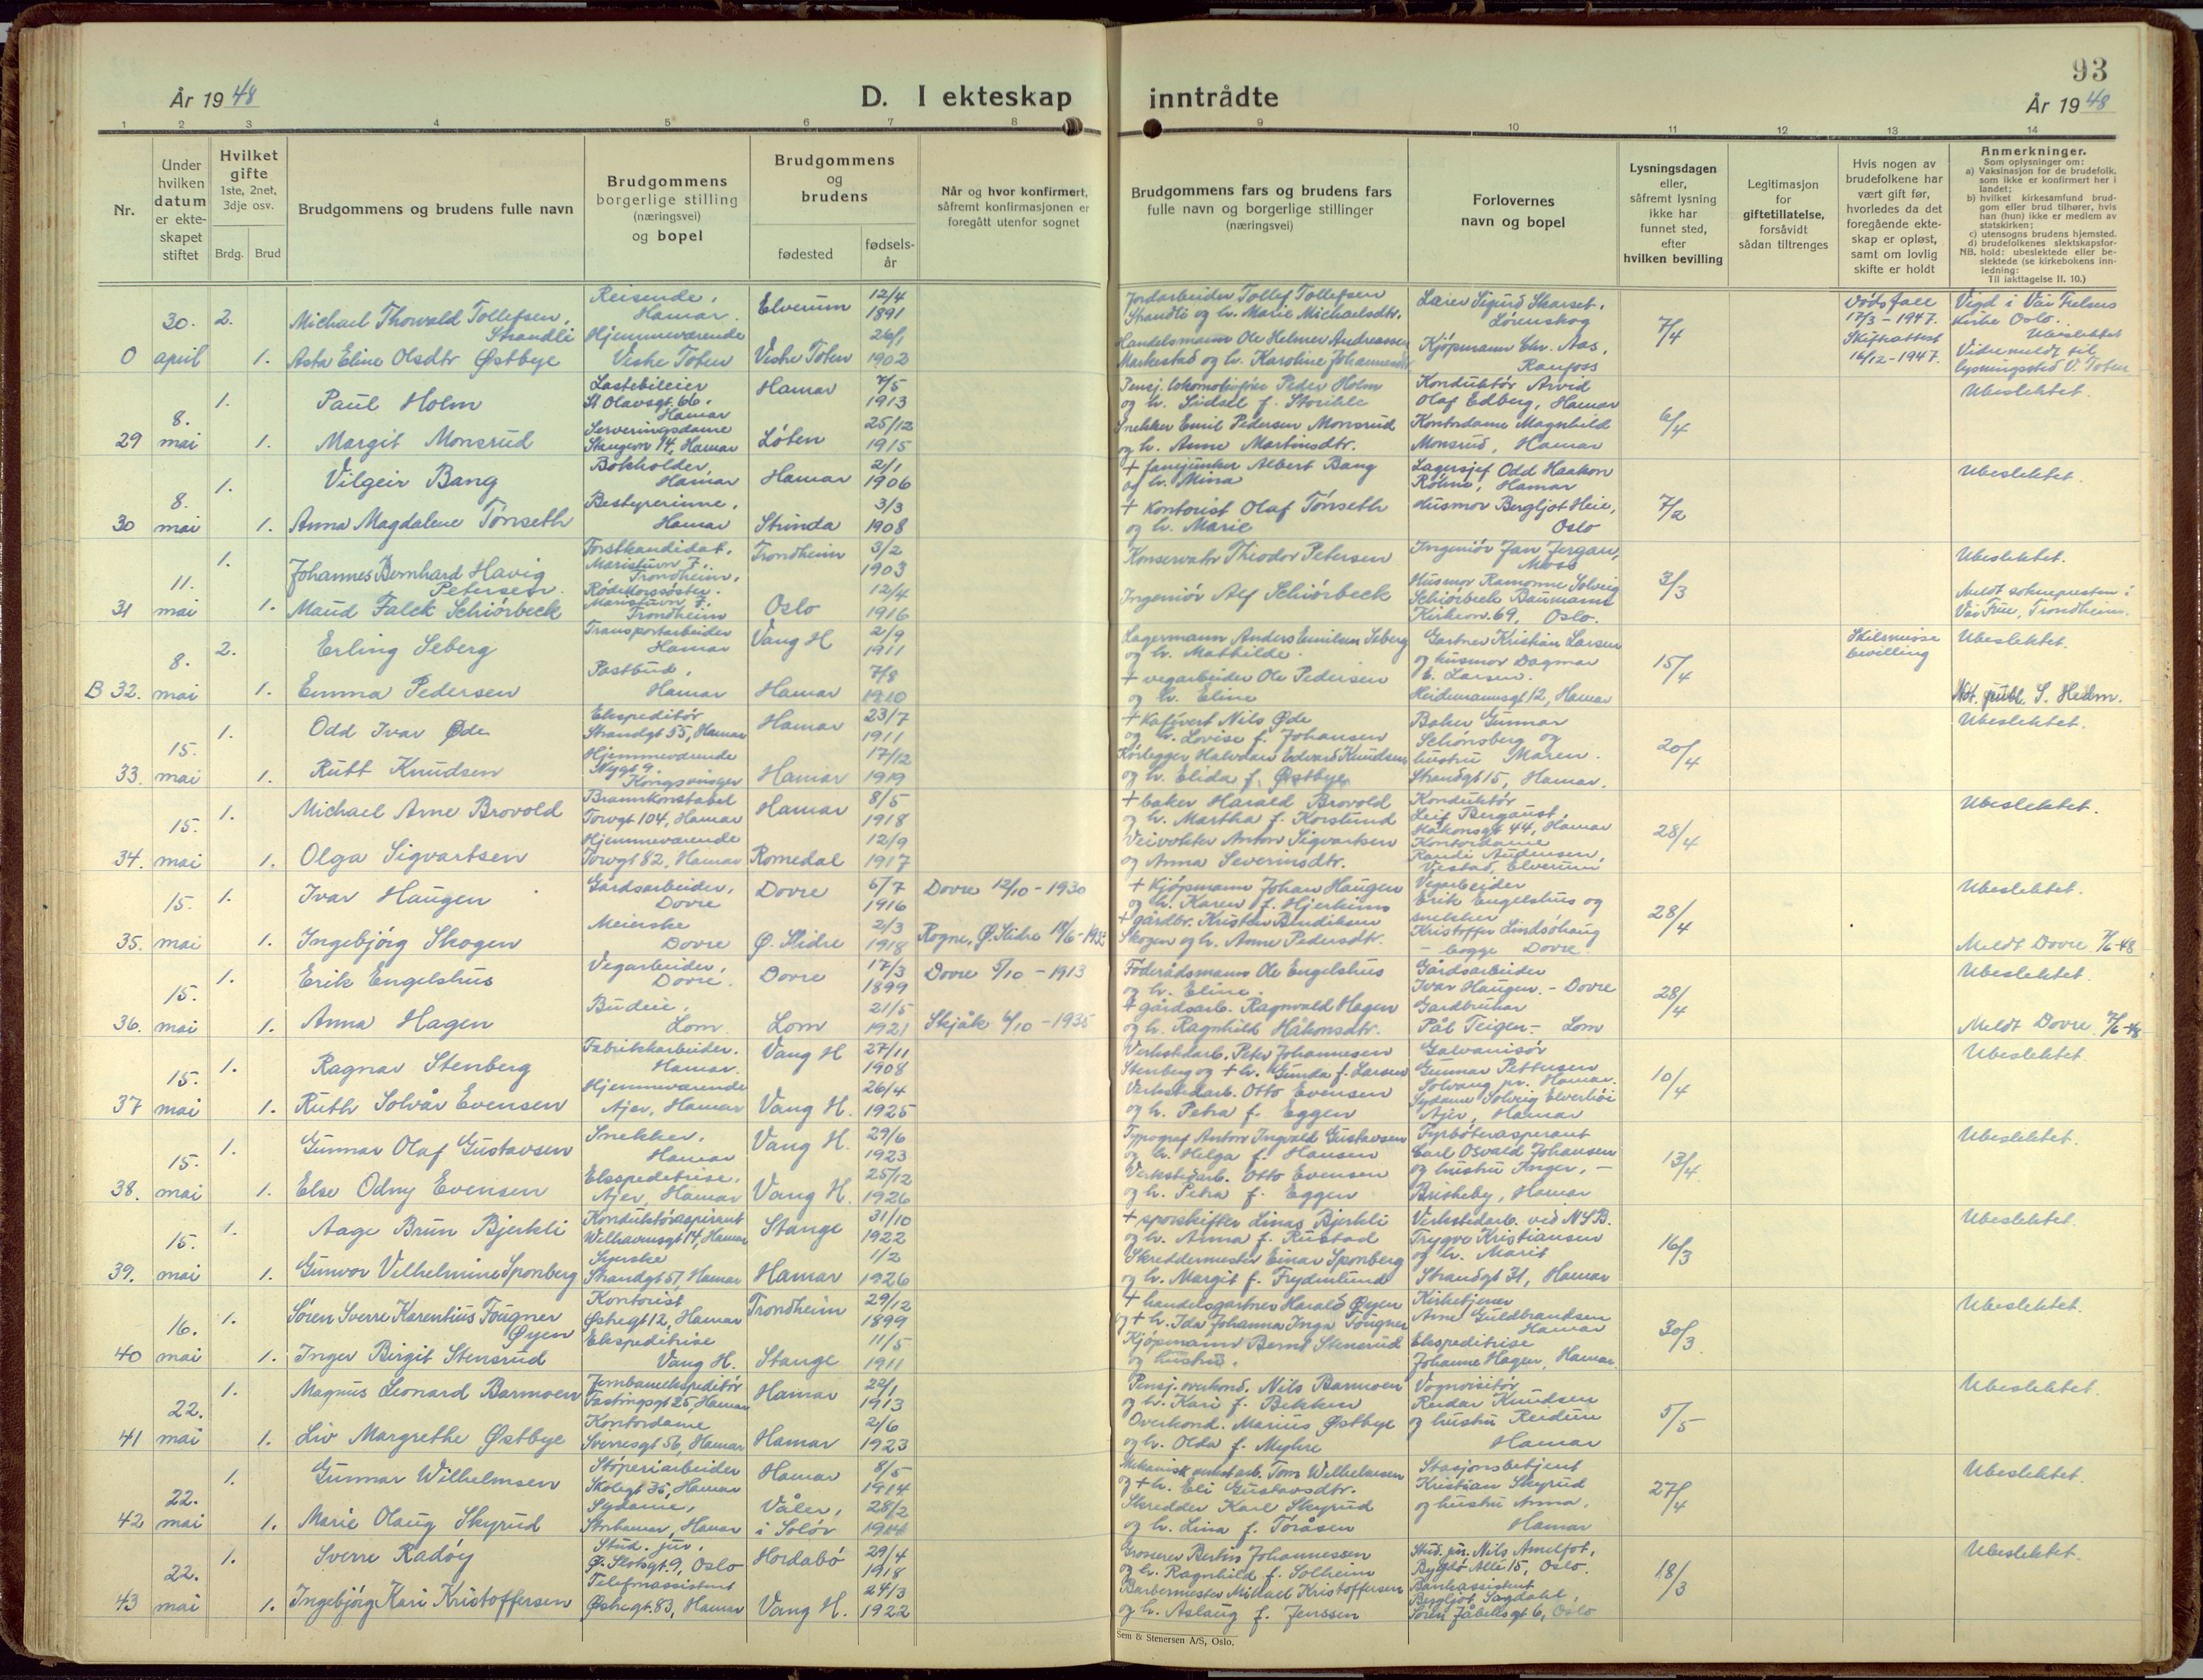 93
År 1948
D. I ekteskap inntrådte
År 1948
1 2 3 4 5 6 7 8 9 10 11 12 13 14
Nr.
Under hvilken datum er ekte-skapet stiftet
Hvilket gifte
1ste, 2net, 3dje osv.
Brdg. Brud
Brudgommens og brudens fulle navn
Brudgommens borgerlige stilling (næringsvei) og bopel
Brudgommens og brudens
fødested
fødsels-år
Når og hvor konfirmert, såfremt konfirmasjonen er foregått utenfor sognet
Brudgommens fars og brudens fars fulle navn og borgerlige stillinger (næringsvei)
Forlovernes navn og bopel
Lysningsdagen eller, såfremt lysning ikke har funnet sted, efter hvilken bevilling
Legitimasjon for giftetillatelse, forsåvidt sådan tiltrenges
Hvis nogen av brudefolkene har vært gift før, hvorledes da det foregående ekte-skap er opløst, samt om lovlig skifte er holdt
Anmerkninger.
Som oplysninger om:
a) Vaksinasjon for de brudefolk, som ikke er konfirmert her i landet;
b) hvilket kirkesamfund brud-gom eller brud tilhører, hvis han (hun) ikke er medlem av statskirken;
c) utensogns brudens hjemsted.
d) brudefolkenes slektskapsfor-hold: ubeslektede eller be-slektede (se kirkebokens inn-ledning:
NB. Til iakttagelse II. 10.)
0 30. april 2. Michael Thorvald Tollefsen Strandli Reisende, Hamar. Elverum 12/4 1891 Jordarbeider Tollef Tollefsen Strandli og h. Marie Michaelsdtr. Lærer Sigurd Skarset, Lørenskog 7/4 Dødsfall 17/3-1947. Skifteattest 16/12-1947. Vigd i Vår Frelsers kirke Oslo. Ubeslektet
1. Asta Eline Olsdtr Østbye Hjemmeværende Vestre Toten Vestre Toten 26/1 1902 Handelsmann Ole Helmer Andreassen Markestad og h. Karoline Johannesdtr Kjøpmann Chr. Aas, Raufoss Videremeldt til lysningssted V. Toten
29 8. mai 1. Paul Holm Lastebileier St Olavsgt. 66, Hamar Hamar 7/5 1913 Pensj. lokomotivfører Peder Holm og h. Sidsel f. Storihle Konduktør Arvid Olaf Edberg, Hamar 6/4 Ubeslektet.
1. Margit Monsrud Serveringsdame Skaugvn 14, Hamar Løten 25/12 1915 Snekker Emil Pedersen Monsrud og h. Anne Martinsdtr. Kontordame Magnhild Monsrud, Hamar
30 8. mai 1. Vilgeir Bang Bokholder, Hamar Hamar 2/1 1906 + fanejunker Albert Bang og h. Mina Lagersjef Odd Haakon Røhne, Hamar 7/2 Ubeslektet.
1. Anna Magdalene Tønseth Bestyrerinne, Hamar Strinda 3/3 1908 + Kontorist Olaf Tønseth og h. Marie Husmor Bergljot Heie, Oslo
31 11. mai 1. Johannes Bernhard Havig Petersen. Forstkandidat, Maristuvn 7, Trondheim, Trondheim 3/2 1903 Konservator Theodor Petersen Ingeniør Jan Jergan, Moss 3/3 Ubeslektet.
1. Maud Falck Schiørbeck Rødekorssøster. Maristuvn 7. Trondheim Oslo 12/4 1916 Ingeniør Alf Schiørbeck Husmor Ramonne Solveig Schiørbeck Baumann Kirkevn. 69, Oslo. Meldt sokneprestene i Vår Frue, Trondheim.
B 32. 8. mai 2. Erling Seberg Transportarbeider Hamar Vang H 2/9 1911 Lagermann Anders Emilsen Seberg og h. Mathilde. Gartner Kristian Larsen og husmor Dagmar E. Larsen. Heidemannsgt 12, Hamar 15/4 Skilsmisse bevilling Ubeslektet.
1. Emma Pedersen Postbud, Hamar Hamar 7/8 1910 + vegarbeider Ole Pedersen og h. Eline Not. publ. S. Hedm.
33. 15. mai 1. Odd Ivar Øde Ekspeditør Strandgt 55, Hamar Hamar 23/7 1911 + Kafévert Nils Øde og h. Lovise f. Johansen Baker Gunnar Schønsberg og hustru Maren. Strandgt 15, Hamar. 20/4 Ubeslektet.
1. Rutt Knudsen Hjemmeværende Nygt 9. Kongsvinger Hamar 17/12 1919 Rørlegger Halvdan Edvard Knudsen og h. Elida f. Østbye
34. 15. mai 1. Michael Arne Brovold Brannkonstabel Torvgt 104, Hamar Hamar 8/5 1918 + baker Harald Brovold og h. Martha f. Korslund Konduktør Leif Bergaust, Håkonsgt 44, Hamar 28/4 Ubeslektet.
1. Olga Sigvartsen Hjemmeværende Torvgt 82, Hamar Romedal 12/9 1917 Veivokter Anton Sigvartsen og Anna Severinsdtr. Kontordame Randi Andersen, Vestad, Elverum
35. 15. mai 1. Ivar Haugen Gårdsarbeider, Dovre Dovre 5/7 1916 Dovre 12/10-1930 + Kjøpmann Johan Haugen og h. Karen f. Hjerkinn Vegarbeider Erik Engelshus og snekker Kristoffer Lindsøhaug - begge Dovre. 28/4 Ubeslektet.
1. Ingebjørg Skogen Meierske Dovre Ø. Slidre 2/3 1918 Rogne, Ø. Slidre + gårdbr. Kristen Bendiksen Skogen og h. Anne Pedersdtr. Meldt Dovre 7/6-48
36. 15. mai 1. Erik Engelshus Vegarbeider, Dovre. Dovre 17/3 1899 Dovre 5/10-1913 Føderådsmann Ole Engelshus og h. Eline. Gårdsarbeider Ivar Haugen. - Dovre 28/4 Ubeslektet.
1. Anna Hagen Budeie, Lom. Lom 21/5 1921 Skjåk 6/10-1935 + gårdsarb. Ragnvald Hagen og h. Ragnhild Håkonsdtr. Gardbruker Pål Teigen - Lom Meldt Dovre 7/6-48
37 15. mai 1. Ragnar Stenberg Fabrikkarbeider. Hamar. Vang H 27/11 1908 Verkstedarb. Peter Johannesen Stenberg og + h. Gunda f. Larsen Galvanisør Gunnar Pettersen Solvang pr. Hamar. 10/4 Ubeslektet.
1. Ruth Solvår Evensen Hjemmeværende Ajer, Hamar Vang H. 26/4 1925 Verkstedarb. Otto Evensen og h. Petra f. Eggen Sydame Solveig Elverhøi Ajer, Hamar
38. 15. mai 1. Gunnar Olaf Gustavsen Snekker, Hamar Vang H. 29/6 1923 Typograf Anton Ingvald Gustavsen og h. Helga f. Hansen Fyrbøteraspirant Carl Osvald Johansen og hustru Inger, - Briskeby, Hamar 13/4 Ubeslektet.
1. Else Odny Evensen Ekspeditrise, Ajer, Hamar Vang H. 25/12 1926 Verkstedarb. Otto Evensen og h. Petra f. Eggen
39. 15. mai 1. Aage Brun Bjerkli Konduktøraspirant Wilhavensgt 14, Hamar Stange 31/10 1922 + sporskifter Linas Bjerkli og h. Anna f. Rustad Verkstedarb. ved NSB. Trygve Kristiansen og h. Marit Strandgt 31, Hamar 16/3 Ubeslektet.
1. Gunvor Vilhelmine Sponberg Syerske Strandgt 51, Hamar Hamar 1/2 1926 Skreddermester Einar Sponberg og h. Margit f. Frydenlund
40 16. mai 1. Søren Sverre Karentius Fougner Øyen Kontorist Østregt 12, Hamar Trondheim 29/12 1899 + handelsgartner Harald Øyen og + h. Ida Johanna Inga Fougner Kirketjener Arne Guldbrandsen Hamar 30/3 Ubeslektet.
1. Inger Birgit Stensrud Ekspeditrise Vang H. Stange 11/5 1911 Kjøpmann Bernt Stensrud og hustru. Ekspeditrise Johanne Hagen, Hamar.
41 22. mai 1. Magnus Leonard Barmoen Jernbaneekspeditør Fastingsgt 25, Hamar Hamar 22/1 1913 Pensj. overkond. Nils Barmoen og h. Kari f. Bekken Vognvisitør Reidar Knudsen og hustru Reidun Hamar 5/5 Ubeslektet.
1. Liv Margrethe Østbye Kontordame Sverresgt 56, Hamar Hamar 2/6 1923 Overkond. Marius Østbye og h. Olda f. Myhre
42 22. mai 1. Gunnar Wilhelmsen Støperiarbeider Skolegt 35, Hamar Hamar 8/5 1914 Mekanisk verkst.arb. Tom Wilhelmsen og + h. Eli Gustavsdtr. Stasjonsbetjent Kristian Skyrud og hustru Anna, Hamar 27/4 Ubeslektet.
1. Marie Olaug Skyrud Sydame, Storhamar, Hamar Våler, i Solør 28/2 1914 Skredder Karl Skyrud og h. Lina f. Toråsen
43 22. mai 1. Sverre Radøy Stud. jur. Ø. Slotsgt. 9, Oslo Hordabø 29/4 1918 Grosserer Bertin Johannessen og h. Ragnhild f. Solheim Stud. jur. Nils Amelfot, Bygdø Allé 15, Oslo. 18/3 Ubeslektet.
1. Ingebjørg Kari Kristoffersen Telefonassistent Østregt. 83, Hamar Vang H. 24/3 1922 Barbermester Mikael Kristoffersen og h. Aslaug f. Jenssen Bankassistent Bergljot Sagdahl, Søren Jåbeksgt 6, Oslo
Sem & Stenersen A/S, Oslo.